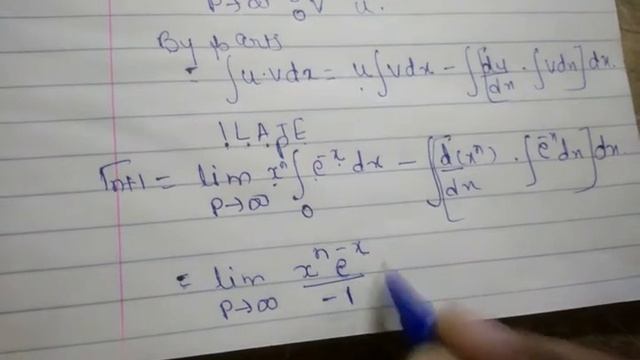 p→∞ 0 v u.
By parts
= ∫u·vdx = u∫vdx − ∫[du/dx · ∫vdx]dx.
ILATE
Γn+1 = lim p→∞ xⁿ ∫₀ᵖ e⁻ˣ dx − ∫[d(xⁿ)/dx · ∫e⁻ˣdx]dx
= lim p→∞ xⁿ e⁻ˣ/−1